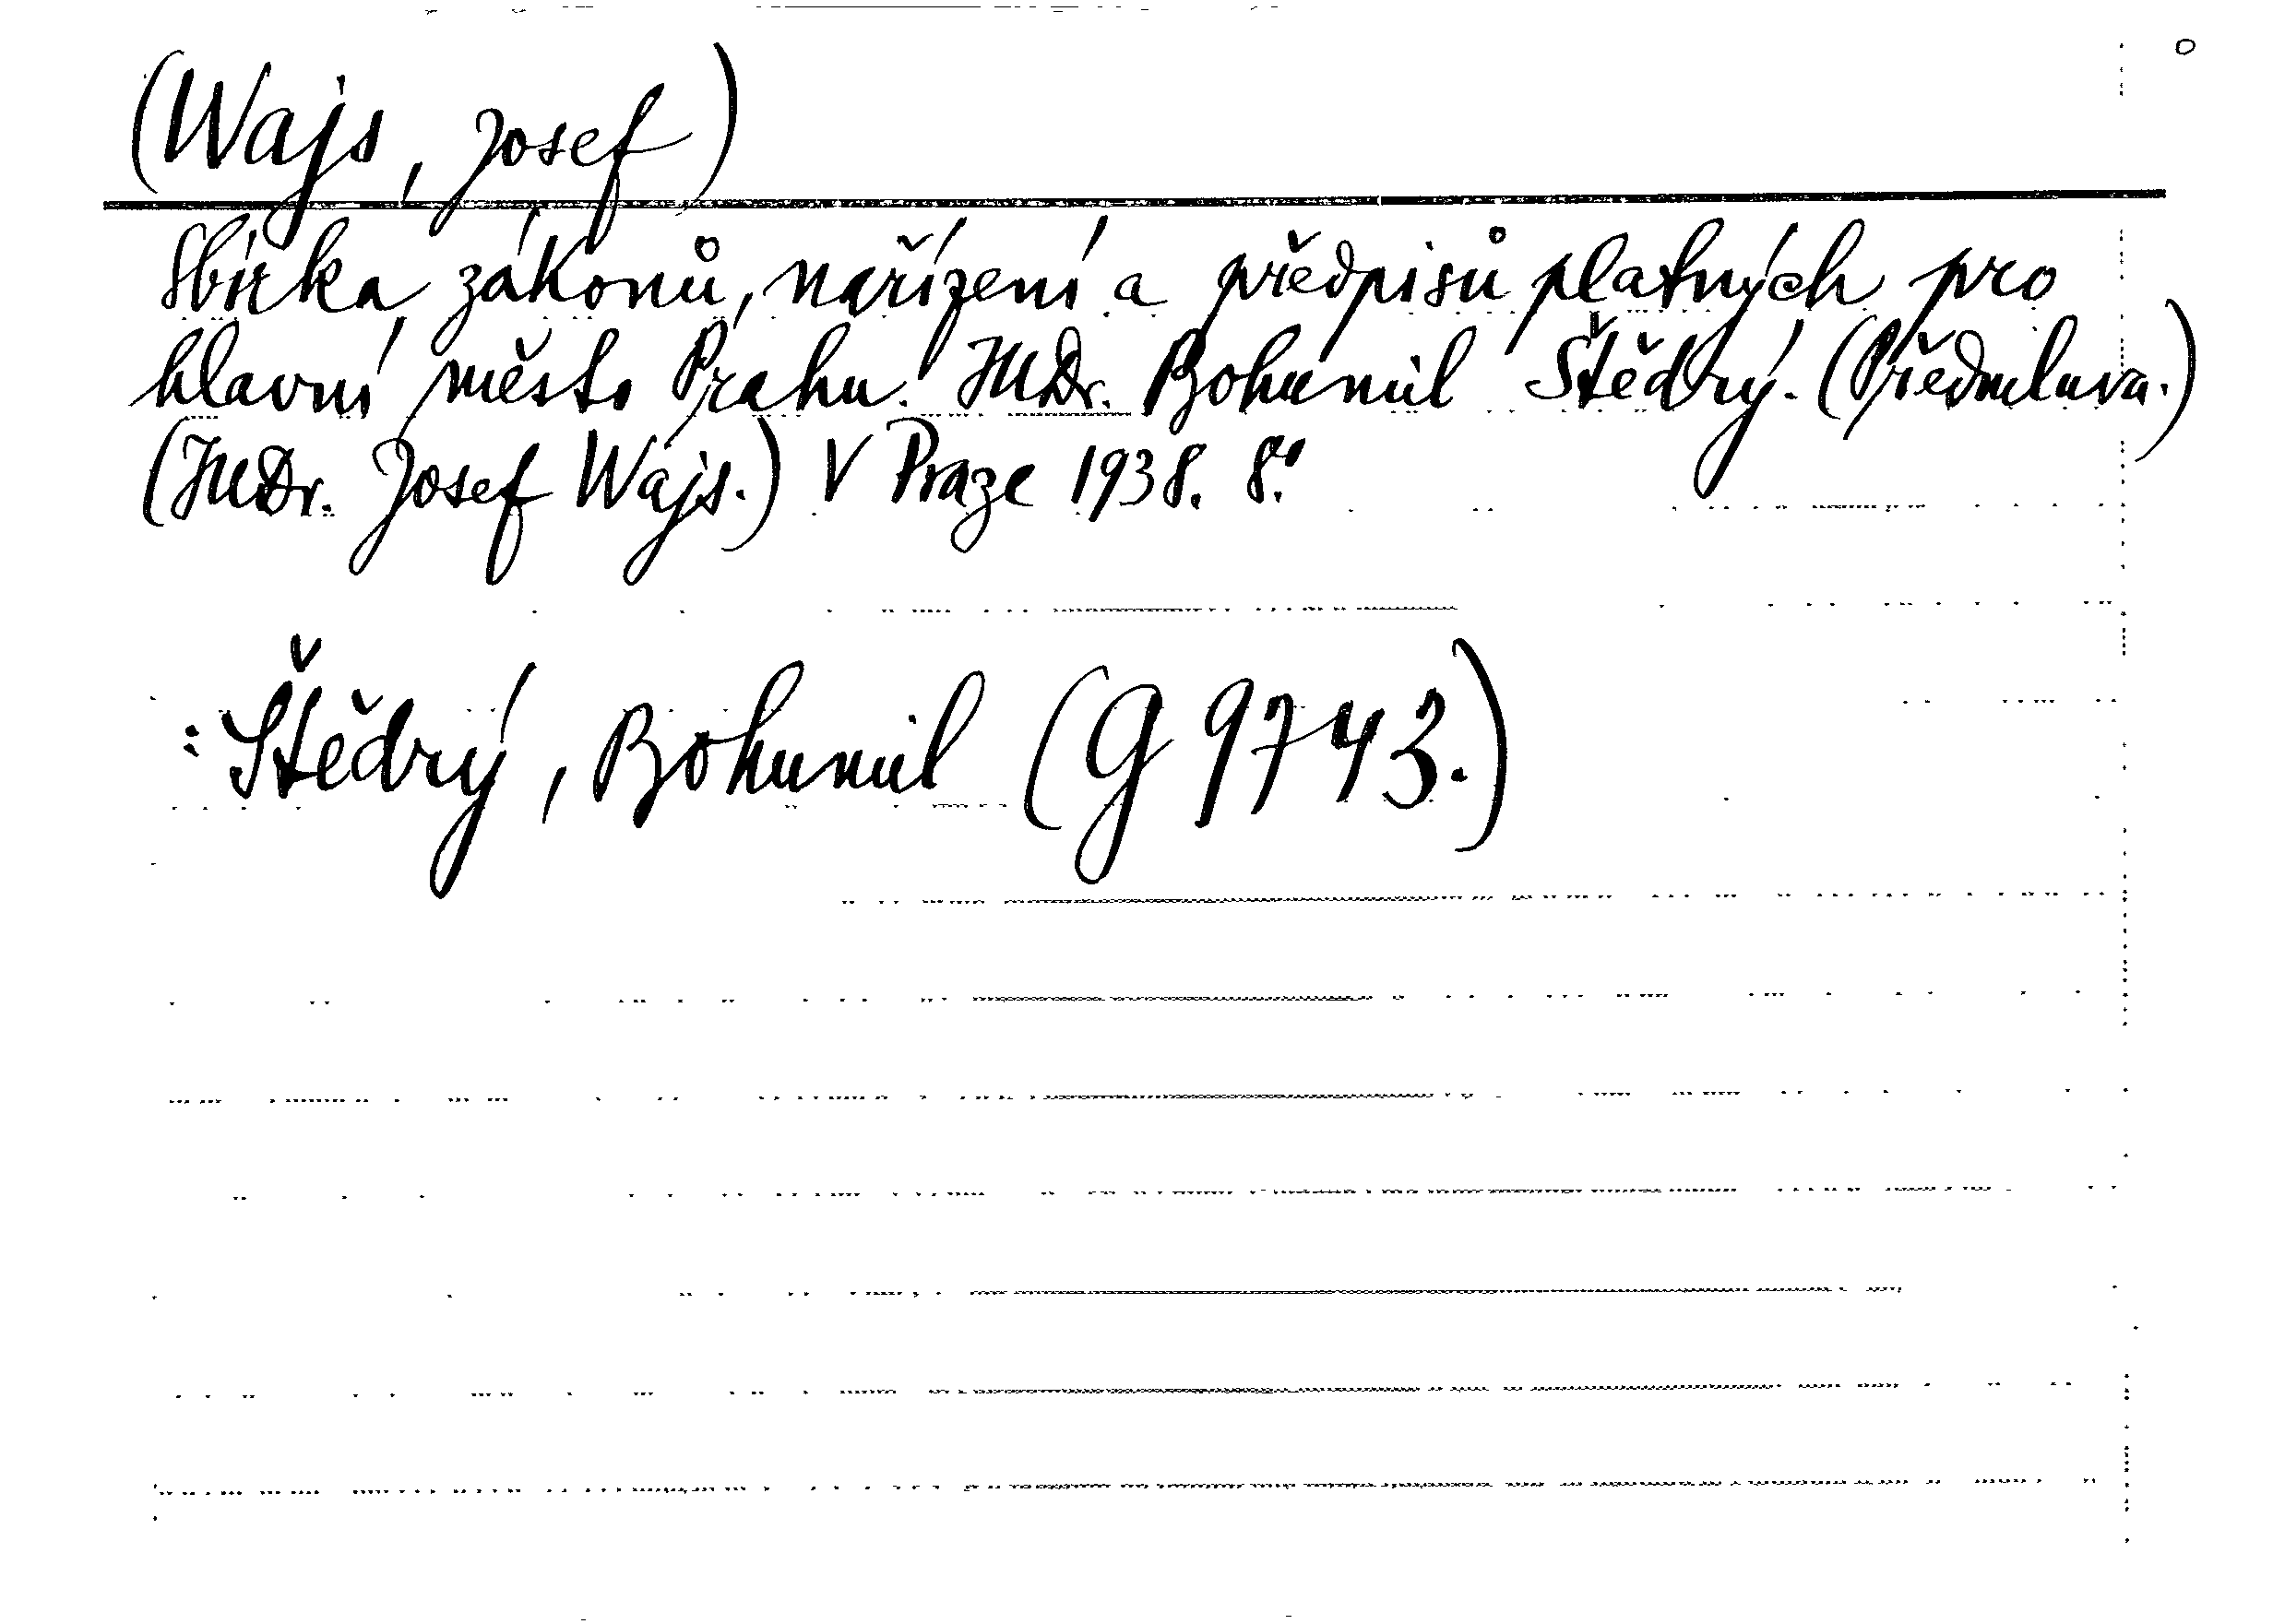 (Wajs, Josef)
Sbírka zákonů, nařízení a předpisů platných pro
hlavní město Prahu. JUDr. Bohumil Štědrý. (Předmluva.)
(JUDr. Josef Wajs.) V Praze 1938. 8.º
: Štědrý, Bohumil (G 9743.)